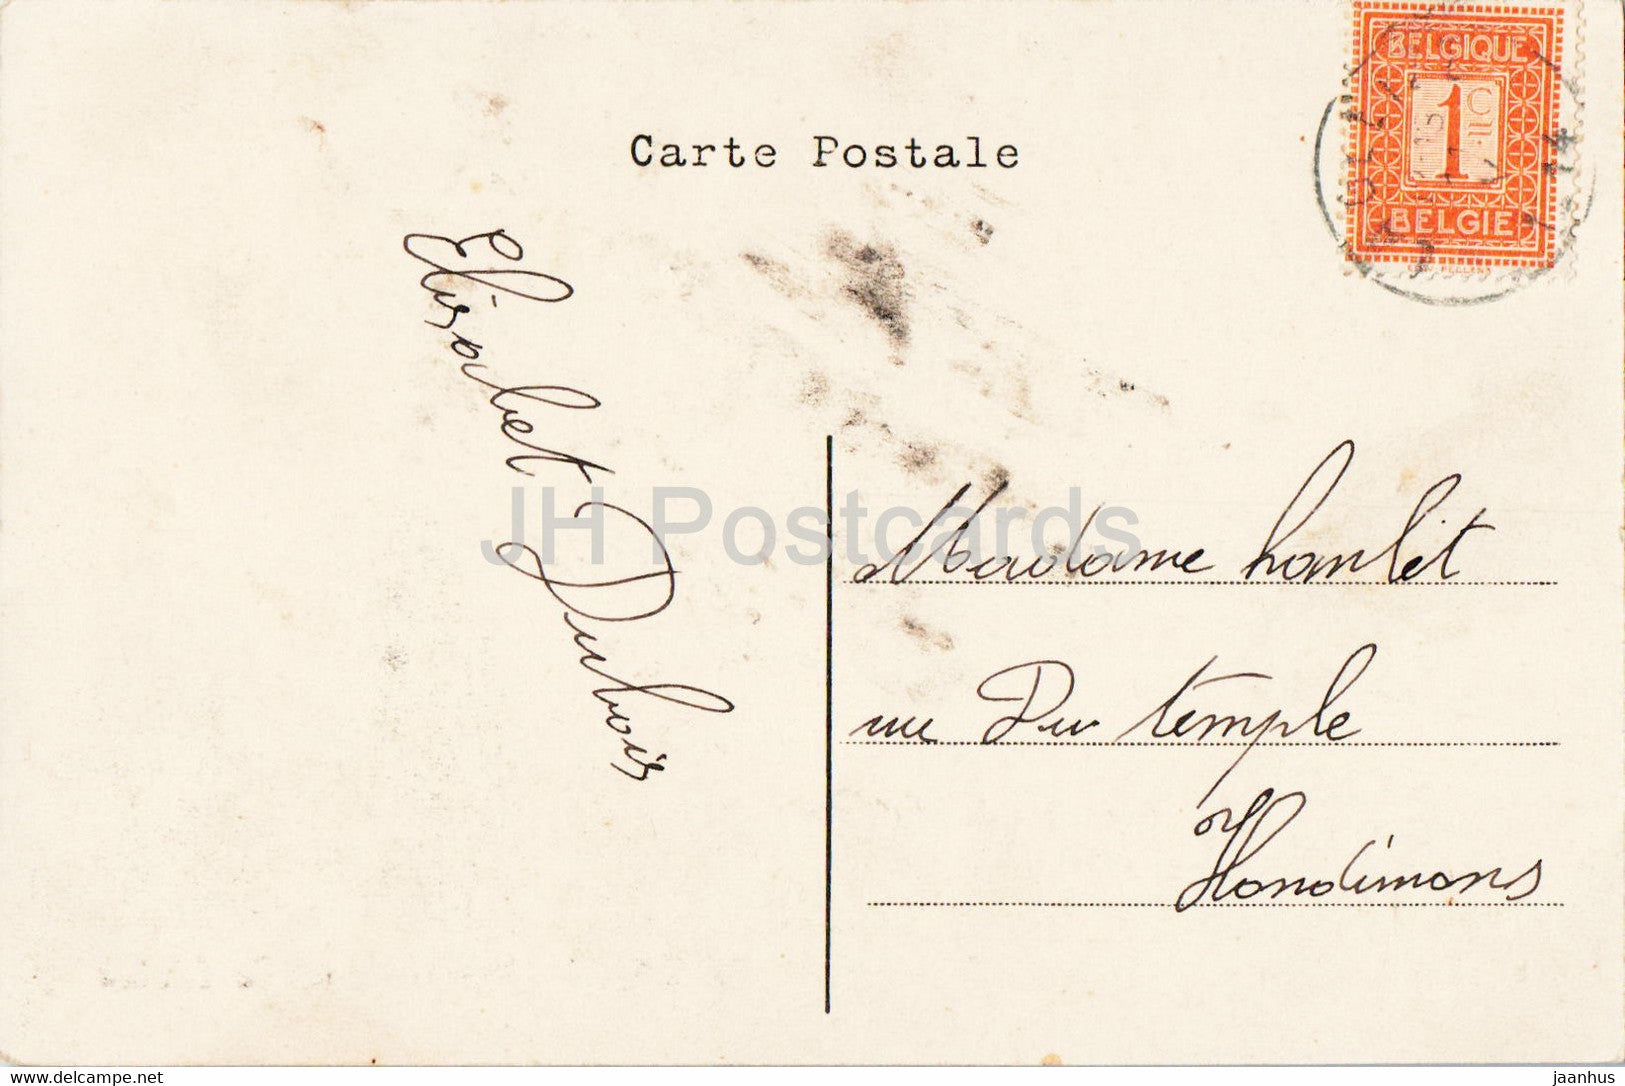 BELGIQUE
1 CE
BELGIE
Carte Postale
Elisabet Dubois
Madame hanlet
rue Du temple
Hondimons
JH Postcards
www.delcampe.net
jaanhus